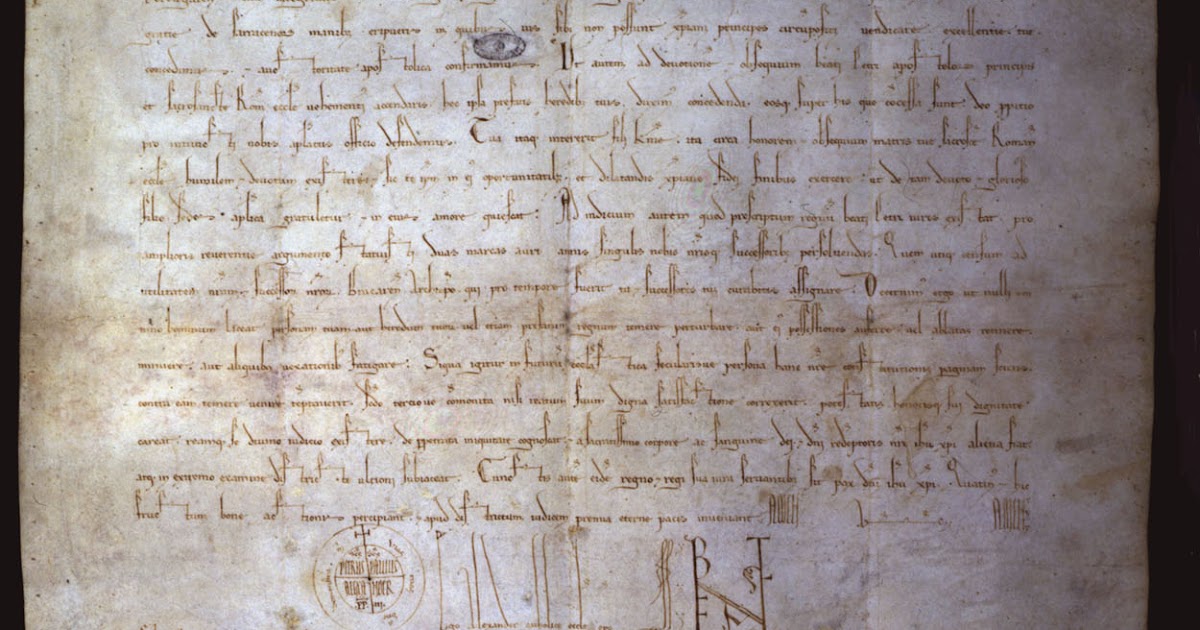 gratie de sarracenorũ manibȝ eripueris in quibȝ ius sibi non possunt xpiani principes circũpositi uendicare. excellentie tue
concedimus. 7 auctoritate apostolica confirmamus. Ut autem ad deuotionẽ 7 obsequium beati Petri apostolorũ principis
et sacrosancte Roma eccle uehementius accendaris. hec ipsa prefatis heredibȝ tuis. duximus concedenda. eosqȝ super his que cõcessa sunt. deo ppitio
pro iniuncti nobis aplatus officio defendemus. Tua itaqȝ intererit fili Kme. ita circa honorem 7 obsequium matris tue sacrosce Romane
eccle. humilem 7 deuotum existere. sic te ipm in ei oportunitatibȝ et dilatandis xpiane fidei finibus exercere. ut de tam deuoto 7 glorioso
filio sedes aplica gratuletur. 7 in eius amore quiescat. Ad indicium autem quod prescriptum regnũ beati Petri iuris existat. pro
amplioris reuerentie argumento statuisti duas marcas auri annis singulis nobis nrisqȝ successoribȝ persoluendas. Quem utiqȝ censum ad
utilitatem nram. successorȝ nrorȝ Bracareñ Archiepo. qui pro tempore fuerit tu 7 successores tui curabitis assignare. Decernimus ergo ut nulli om
nino hominum liceat personam tuam aut heredum tuorȝ uel etiam prefatum regnum temere perturbare. aut ei possessiones auferre. uel ablatas retinere.
minuere. aut aliquibȝ uexationibȝ fatigare. Siqua igitur in futurũ ecclastica secularisue persona hanc nre constitutionis paginam sciens.
contra eam temere uenire teptauerit. secdo tercioue comonita nisi reatum suum digna satisfactione correxerit. potestatis honorisqȝ sui dignitate
careat. reamqȝ se diuino iudicio existere. de ppetrata iniquitate cognoscat. 7 a sacratissimo corpore ac sanguine dei 7 dni redeptoris nri ihu xpi aliena fiat.
atqȝ in extremo examine districte ultioni subiaceat. Cunctis aute eide regno 7 regi sua iura seruantibȝ sit pax dni ihu xpi. Quatinȝ 7 hic
fructum bone actionis percipiant. 7 apud districtum iudicem premia eterne pacis inueniant. AMEN AMEN
PETRUS PAULUS
ALEXANDER
PP. III.
Ego Alexander catholice eccle eps